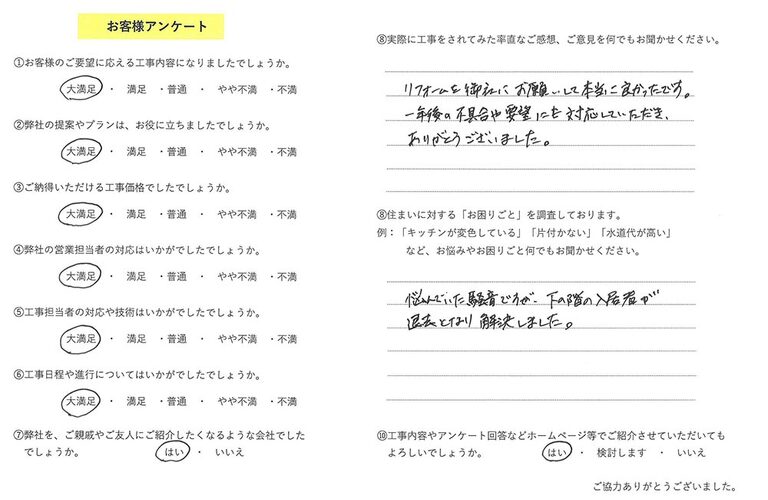 お客様アンケート
①お客様のご要望に応える工事内容になりましたでしょうか。
大満足 ・ 満足 ・普通 ・ やや不満 ・不満
②弊社の提案やプランは、お役に立ちましたでしょうか。
大満足 ・ 満足 ・普通 ・ やや不満 ・不満
③ご納得いただける工事価格でしたでしょうか。
大満足 ・ 満足 ・普通 ・ やや不満 ・不満
④弊社の営業担当者の対応はいかがでしたでしょうか。
大満足 ・ 満足 ・普通 ・ やや不満 ・不満
⑤工事担当者の対応や技術はいかがでしたでしょうか。
大満足 ・ 満足 ・普通 ・ やや不満 ・不満
⑥工事日程や進行についてはいかがでしたでしょうか。
大満足 ・ 満足 ・普通 ・ やや不満 ・不満
⑦弊社を、ご親戚やご友人にご紹介したくなるような会社でした
でしょうか。 はい ・ いいえ
⑧実際に工事をされてみた率直なご感想、ご意見を何でもお聞かせください。
リフォームを御社にお願いして本当に良かったです。
一年後の不具合や要望にも対応していただき、
ありがとうございました。
⑧住まいに対する「お困りごと」を調査しております。
例：「キッチンが変色している」「片付かない」「水道代が高い」
など、お悩みやお困りごと何でもお聞かせください。
悩んでいた騒音ですが、下の階の入居者が
退去となり解決しました。
⑩工事内容やアンケート回答などホームページ等でご紹介させていただいても
よろしいでしょうか。 はい ・ 検討します ・ いいえ
ご協力ありがとうございました。